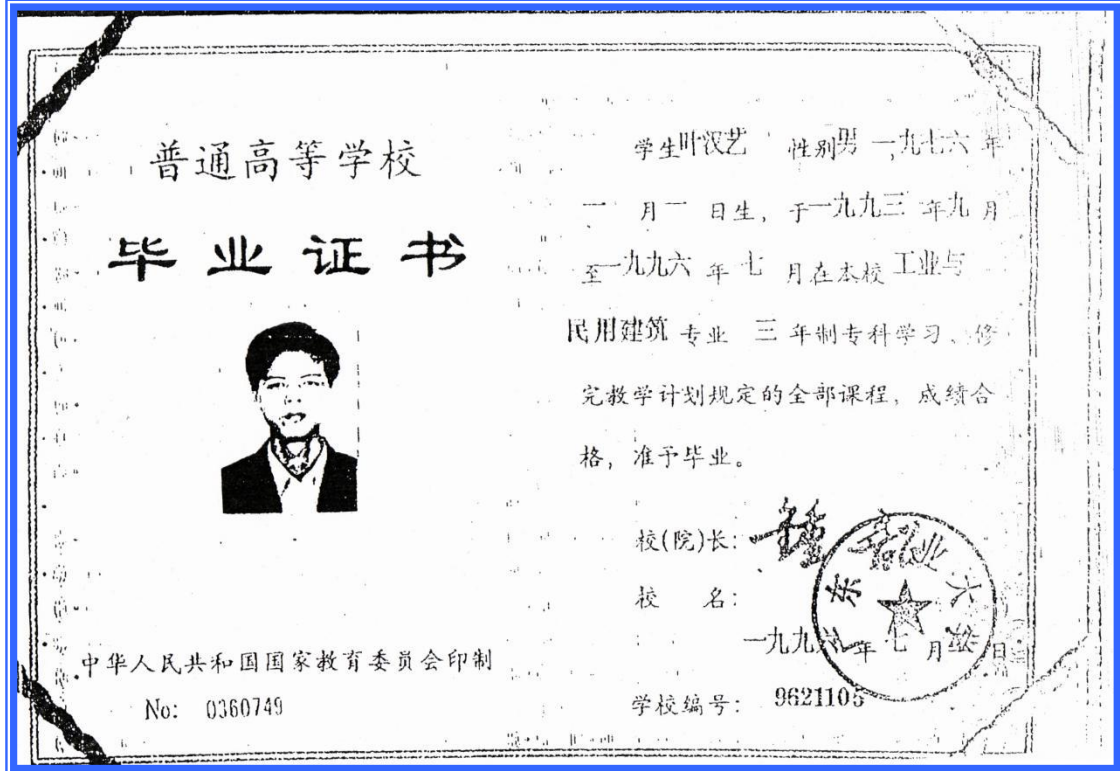 普通高等学校
毕业证书
中华人民共和国国家教育委员会印制
No: 0360749
学生叶汉艺 性别男 一九七六年
一 月一 日生，于一九九三 年九月
至一九九六 年 七 月在本校 工业与
民用建筑 专业 三 年制专科学习、修
完教学计划规定的全部课程，成绩合
格，准予毕业。
校(院)长：
校 名：
一九九六 年 七 月 日
学校编号： 9621105